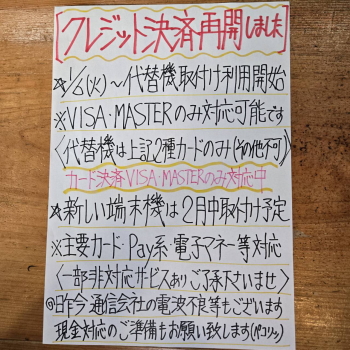 [クレジット決済再開しました]
★1/6(火)～代替機取付け利用開始
※VISA・MASTERのみ対応可能です
〈代替機は上記2種カードのみ(その他不可)〉
カード決済VISA・MASTERのみ対応中
★新しい端末機は2月中取付け予定
※主要カード・Pay系・電子マネー等対応
〈一部非対応サービスあり ご了承下さいませ〉
@昨今通信会社の電波不良等もございます
現金対応のご準備もお願い致します(ペコリッ)